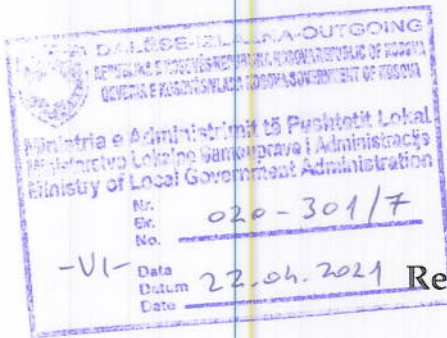 DALËSE-IZLAZNA-OUTGOING
REPUBLIKA E KOSOVËS-REPUBLIKA KOSOVA-REPUBLIC OF KOSOVA
QEVERIA E KOSOVËS-VLADA KOSOVA-GOVERNMENT OF KOSOVA
Ministria e Administrimit të Pushtetit Lokal
Ministarstvo Lokalne Samouprave i Administracije
Ministry of Local Government Administration
Nr.
Br.
No.
020-301/7
-VI-
Data
Datum
Date
22.04.2021
Re